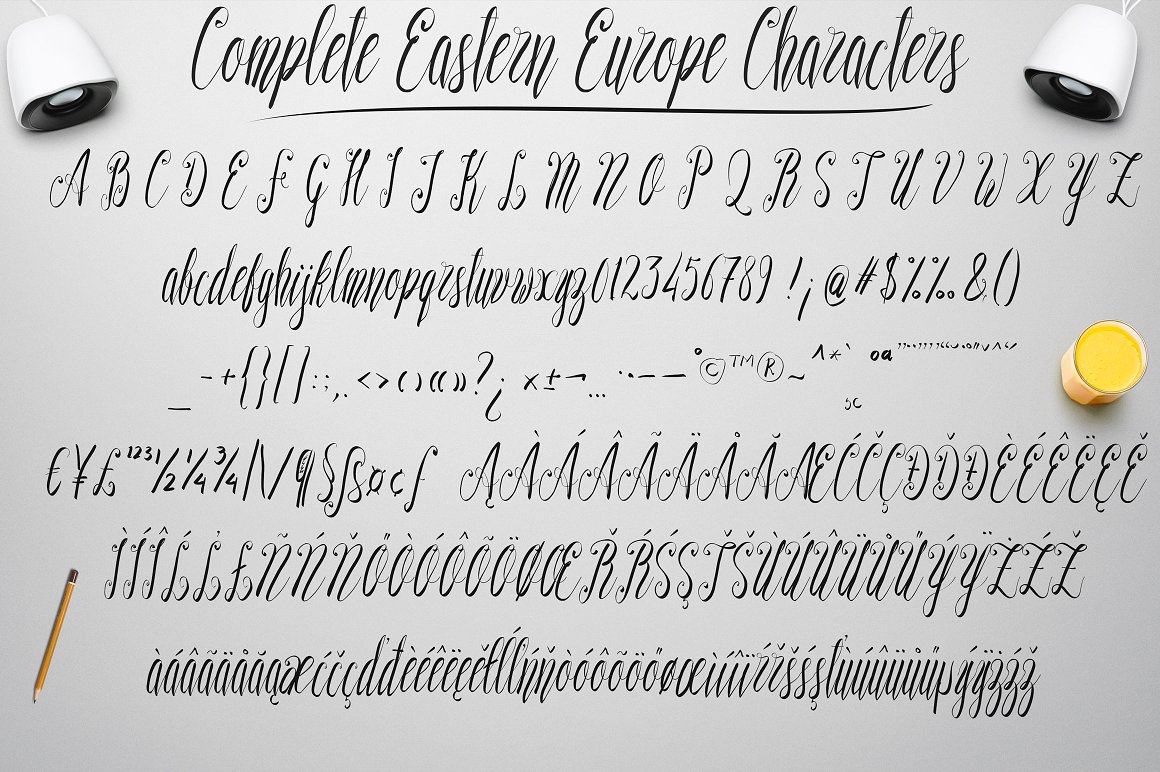 Complete Eastern Europe Characters
A B C D E F G H I J K L M N O P Q R S T U V W X Y Z
abcdefghijklmnopqrstuvwxyz0123456789!¡@#$%‰&()
_-+{}[]:;,.<>‹›«»?¿×±¬…·–—°©™®~^*`ªº
€¥£¹²³½¼¾|\/¶§ß¤¢ƒ ĄÀÁÂÃÄÅĂÆĆČÇĐĎÐÈÉÊËĘĚ
ÌÍÎĹĽŁÑŃŇŐÒÓÔÕÖØŒŘŔŚŞŤŠÙÚÛÜŮŰÝŸŻŹŽ
àáâãäåăąæćčçďđèéêëęěłĺľńňòóôõöőøœìíîïŕřšśşťùúûüůűµýÿżźž